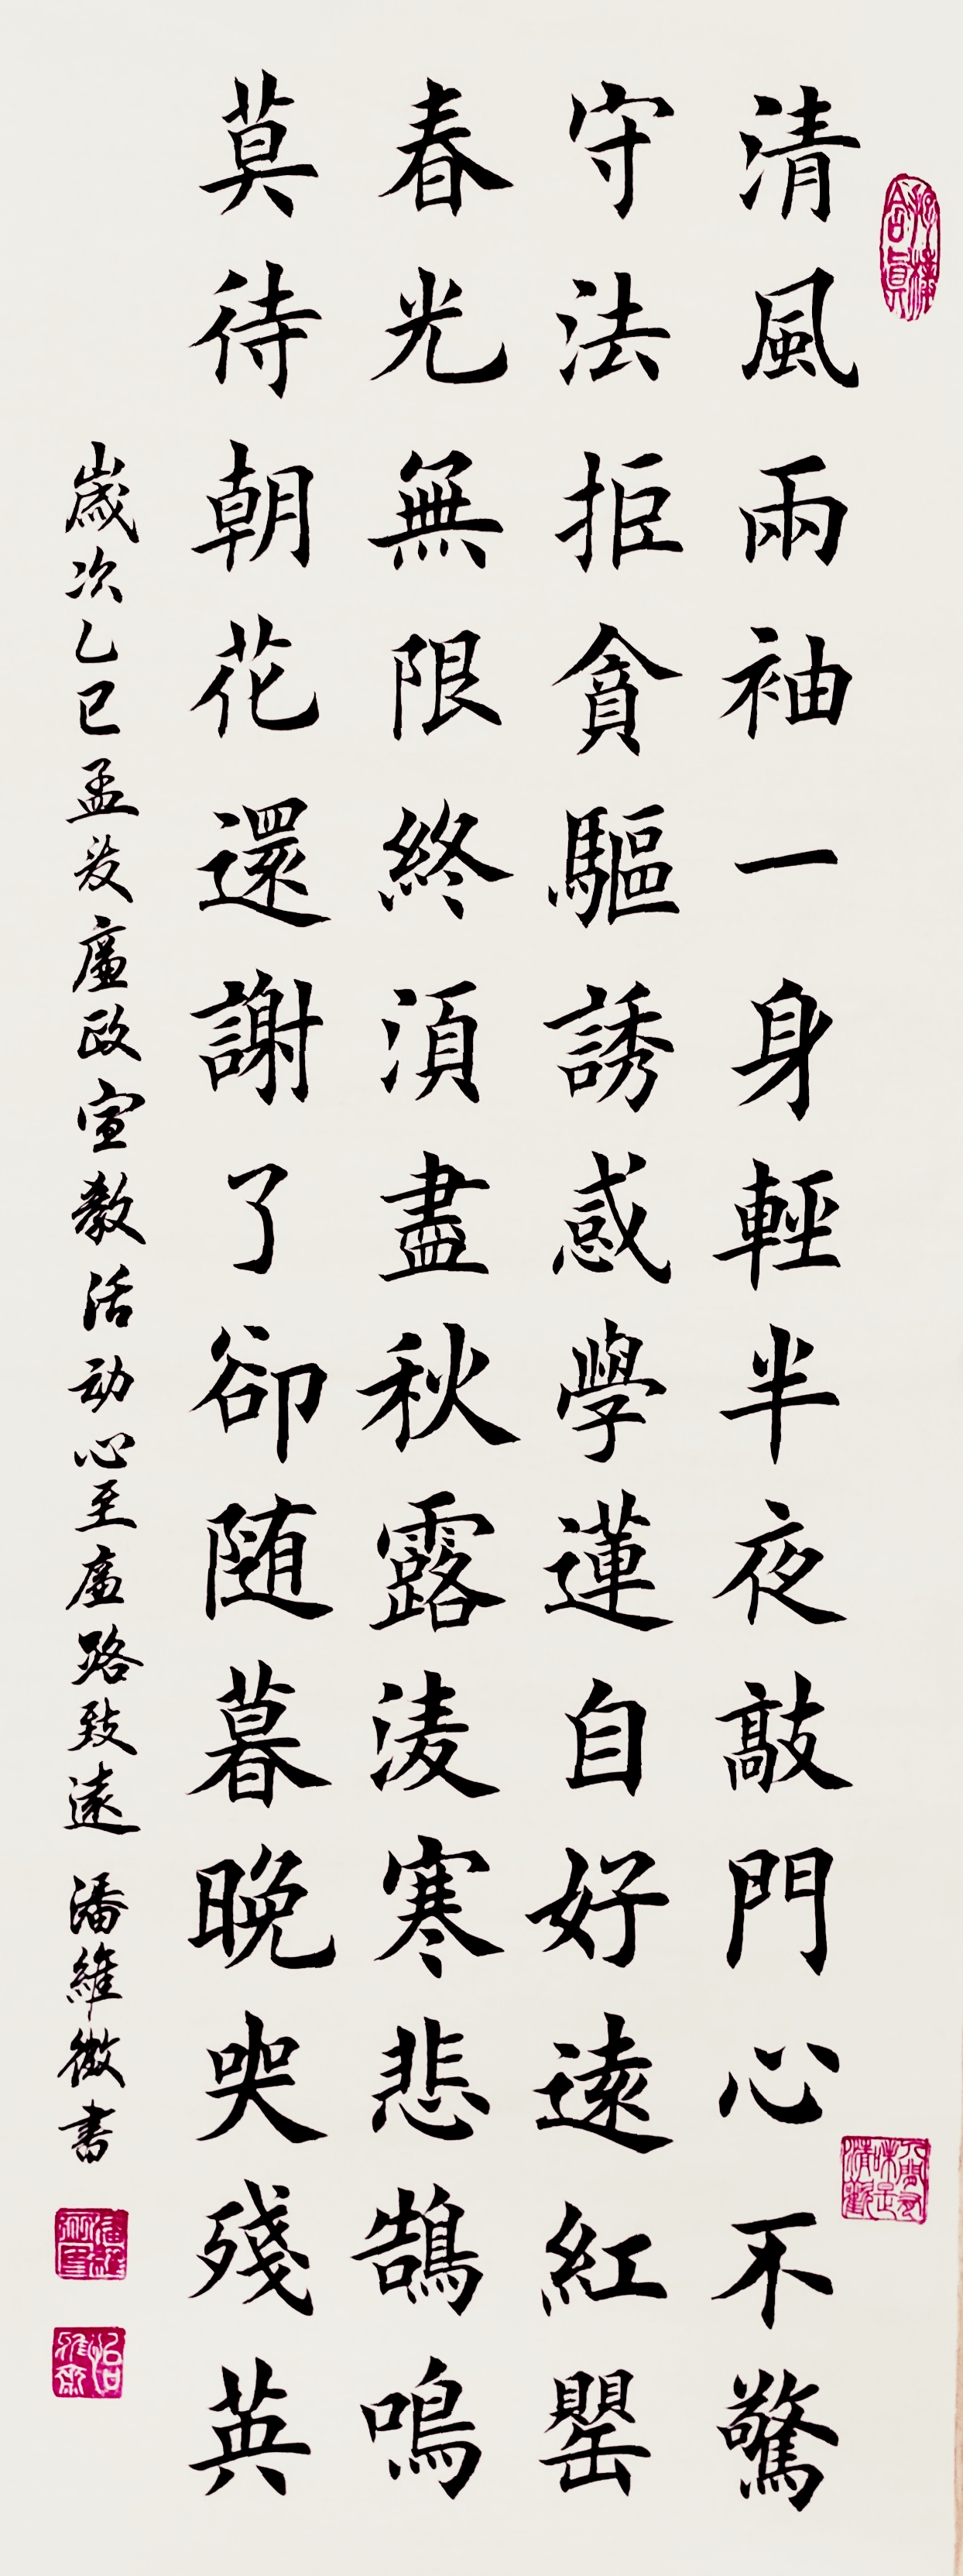 清風兩袖一身輕半夜敲門心不驚
守法拒貪驅誘惑學蓮自好遠紅罌
春光無限終須盡秋露淩寒悲鵠鳴
莫待朝花還謝了卻随暮晚哭殘英
歲次乙巳孟夏廉政宣教活动心至廉路致遠 潘維微書